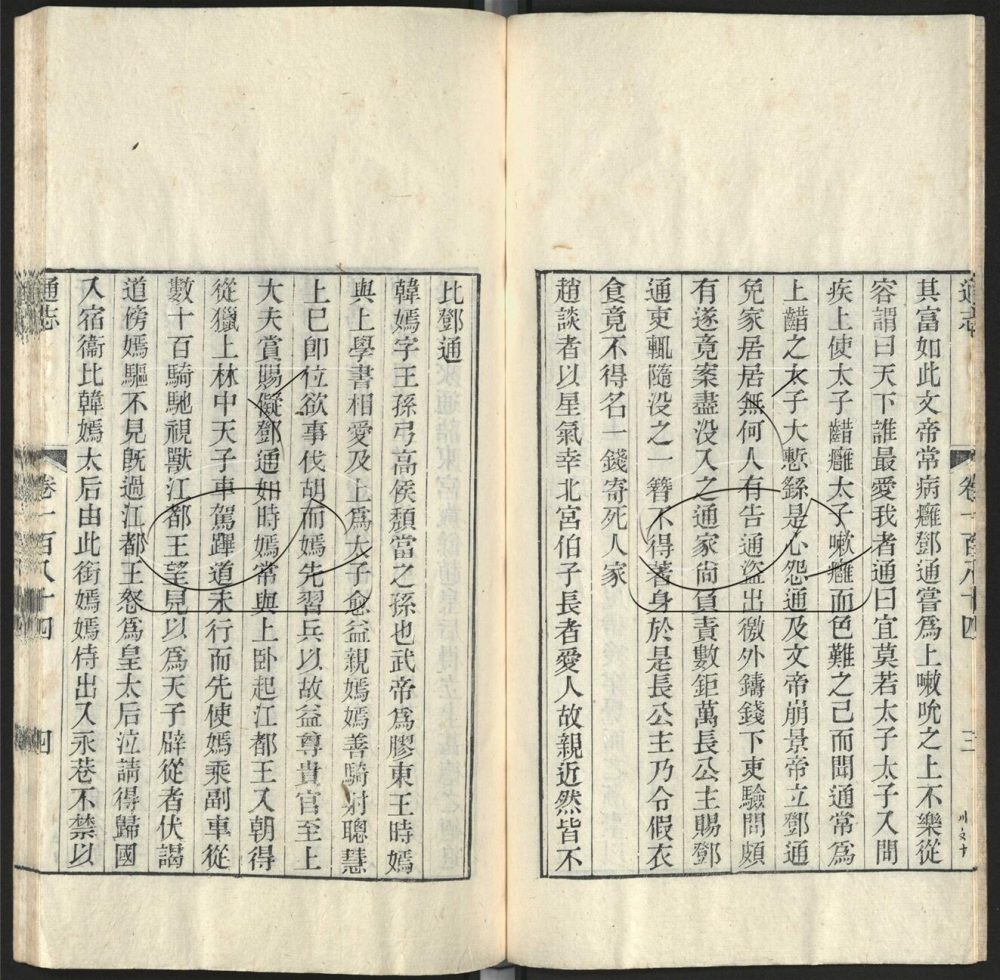 通志
卷一百八十四
三
其富如此文帝常病癰鄧通嘗爲上嗽吮之上不樂從
容謂曰天下誰最愛我者通曰宜莫若太子太子入間
疾上使太子齰癰太子嗽癰而色難之己而聞通常爲
上齰之太子大慙繇是心怨通及文帝崩景帝立鄧通
免家居居無何人有告通盜出徼外鑄錢下吏驗問頗
有遂竟案盡没入之通家尙負責數鉅萬長公主賜鄧
通吏輒隨没之一簪不得著身於是長公主乃令假衣
食竟不得名一錢寄死人家
趙談者以星氣幸北宮伯子長者愛人故親近然皆不
比鄧通
韓嫣字王孫弓高侯頹當之孫也武帝爲膠東王時嫣
與上學書相愛及上爲太子愈益親嫣嫣善騎射聰慧
上巳卽位欲事伐胡而嫣先習兵以故益尊貴官至上
大夫賞賜儗鄧通如時嫣常與上卧起江都王入朝得
從獵上林中天子車駕蹕道未行而先使嫣乘副車從
數十百騎馳視獸江都王望見以爲天子辟從者伏謁
道傍嫣驅不見旣過江都王怒爲皇太后泣請得歸國
入宿衞比韓嫣太后由此銜嫣嫣侍出入永巷不禁以
通志
卷一百八十四
四